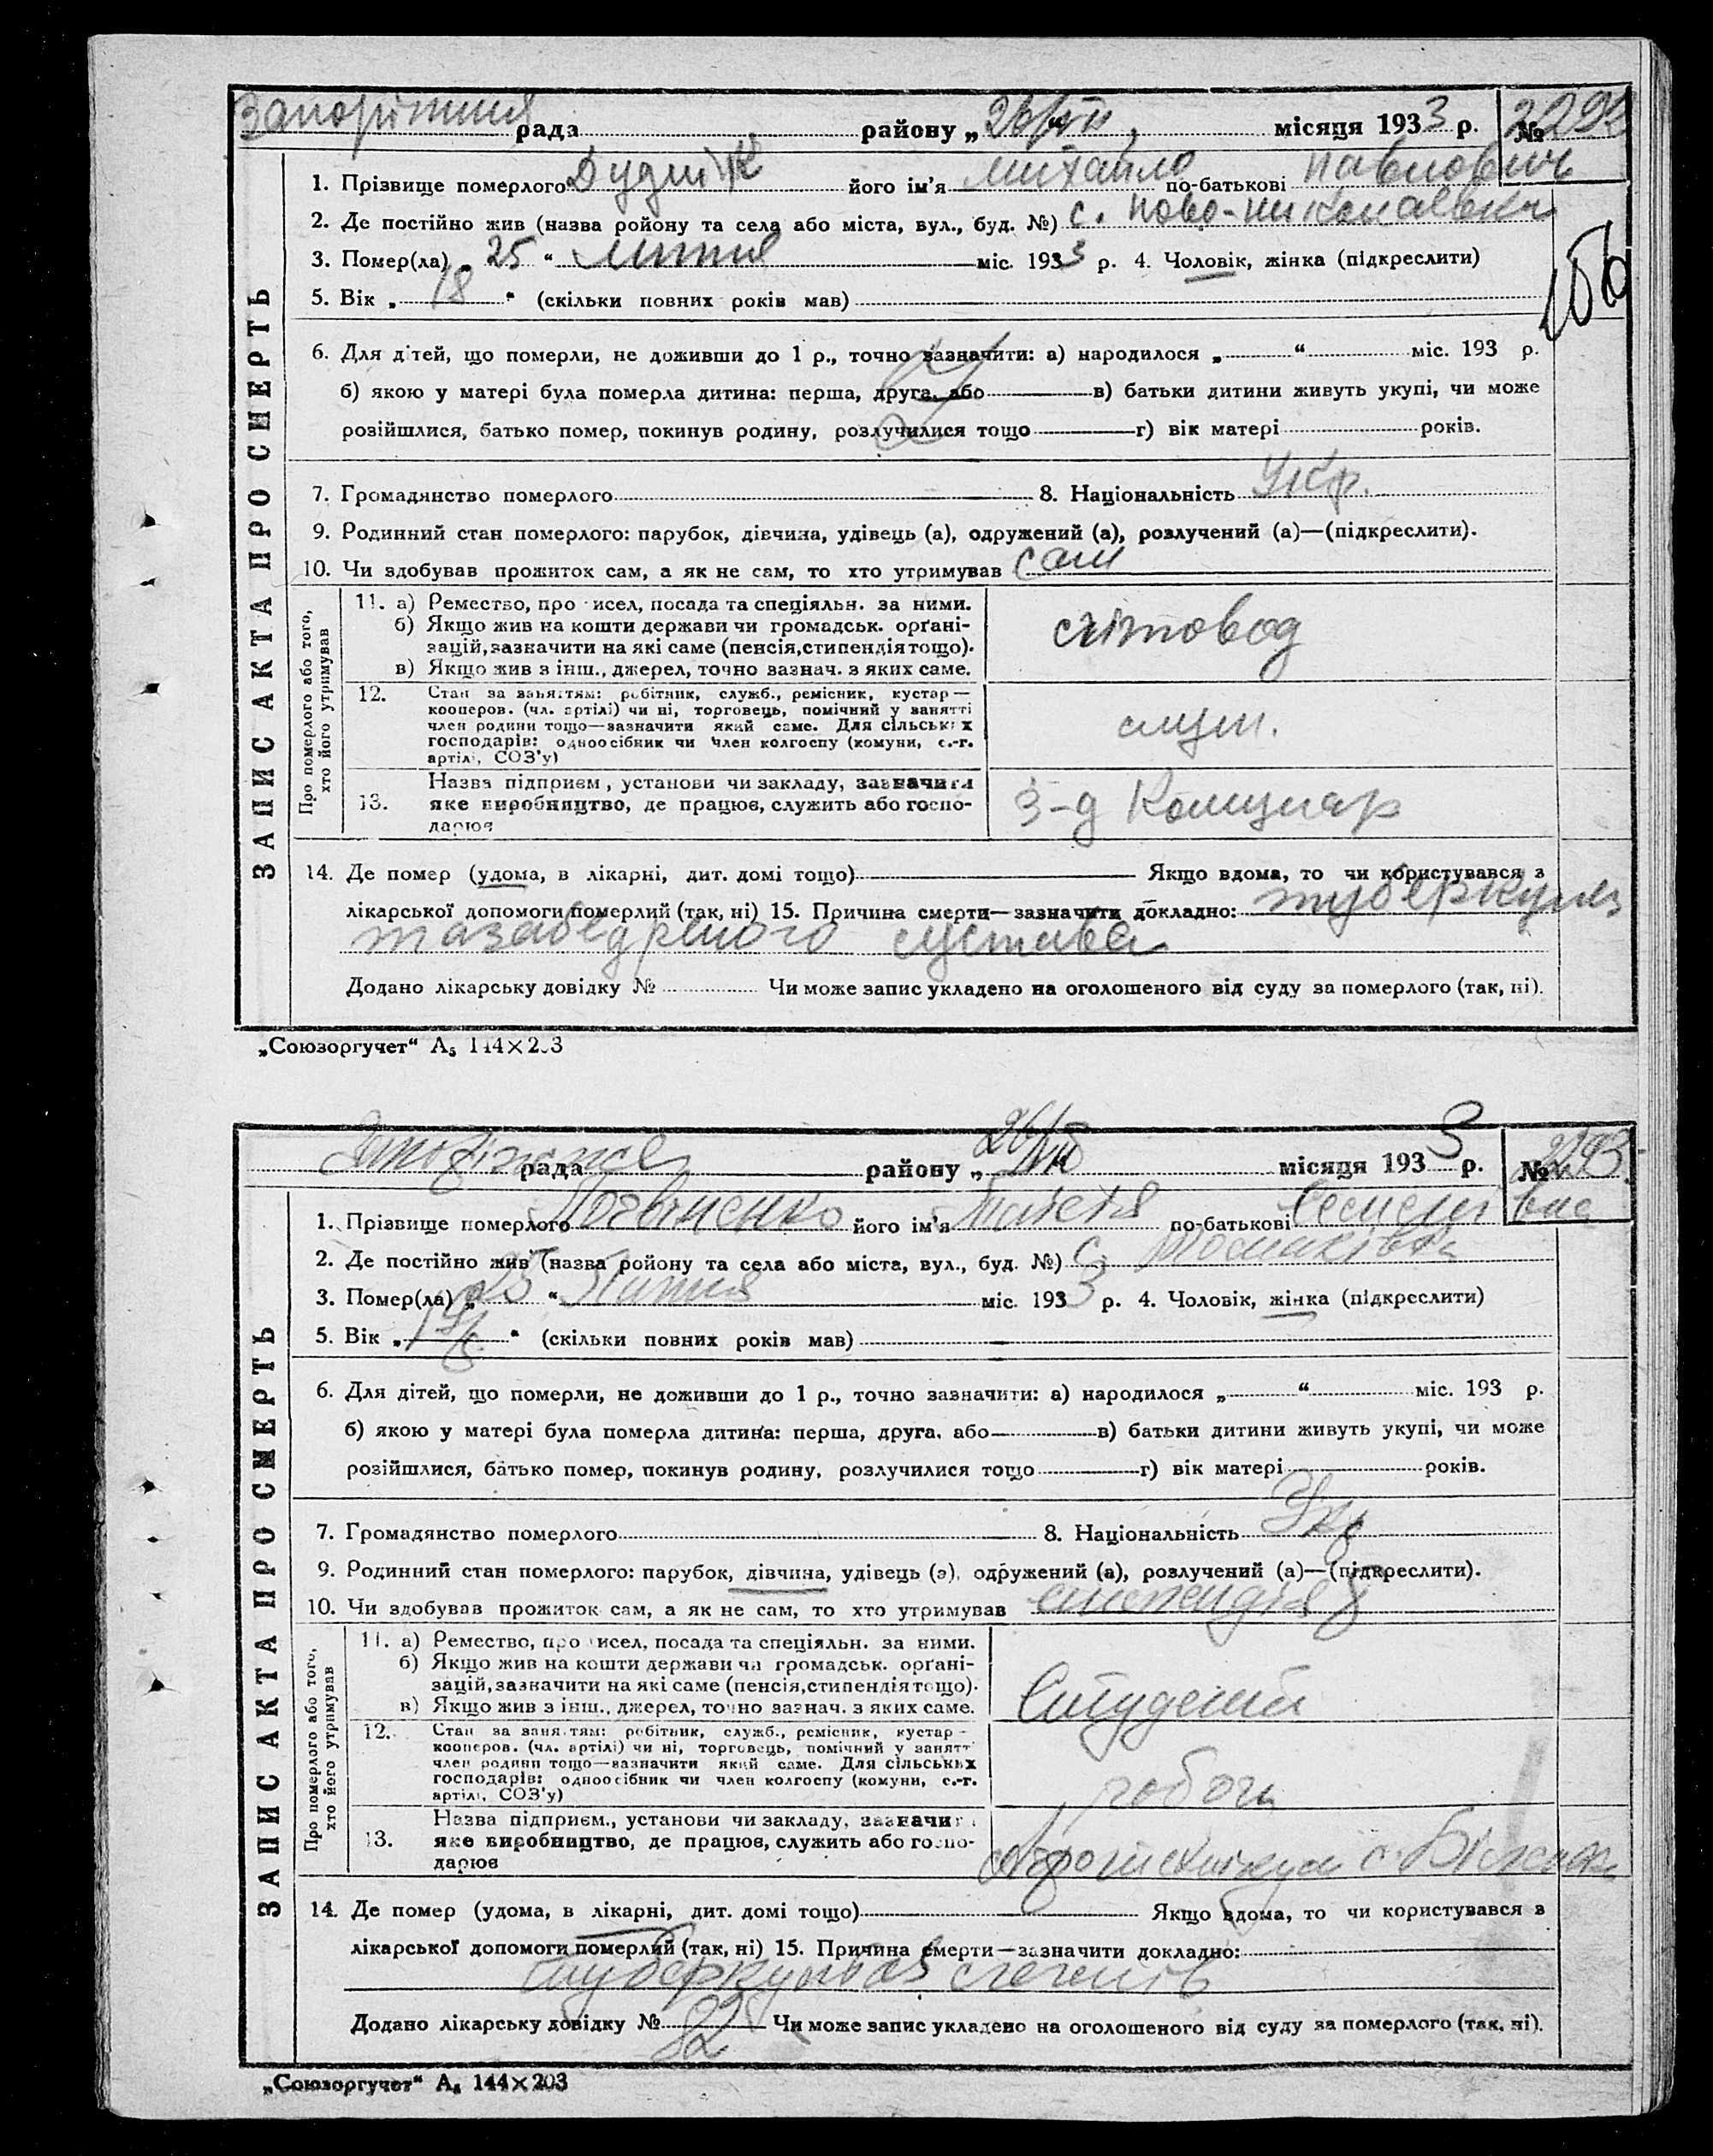 Запоріжжя рада району „26/VII“ місяця 1933 р. № 2292
1. Прізвище померлого Дудник його ім'я Михайло по-батькові Павлович
2. Де постійно жив (назва ройону та села або міста, вул., буд. №) с. Ново-Николаевка
3. Помер(ла) „25“ липня міс. 1933 р. 4. Чоловік, жінка (підкреслити)
5. Вік „18“ (скільки повних років мав)
6. Для дітей, що померли, не доживши до 1 р., точно зазначити: а) народилося „ “ міс. 193 р.
б) якою у матері була померла дитина: перша, друга, або в) батьки дитини живуть укупі, чи може
розійшлися, батько помер, покинув родину, розлучилися тощо г) вік матері років.
7. Громадянство померлого 8. Національність Укр.
9. Родинний стан померлого: парубок, дівчина, удівець (а), одружений (а), розлучений (а)—(підкреслити).
10. Чи здобував прожиток сам, а як не сам, то хто утримував сам
ЗАПИС АКТА ПРО СМЕРТЬ
Про померлого або того,
хто його утримував
11. а) Ремество, про исел, посада та спеціяльн. за ними.
б) Якщо жив на кошти держави чи громадськ. орґані-
зацій, зазначити на які саме (пенсія, стипендія тощо).
в) Якщо жив з інш., джерел, точно зазнач. з яких саме.
счітовод
12. Стан за заняттям: робітник, служб., ремісник, кустар—
кооперов. (чл. артілі) чи ні, торговець, помічний у занятті
член родини тощо—зазначити який саме. Для сільських
господарів: одноосібник чи член колгоспу (комуни, с.-г.
артілі, СОЗ'у)
служ.
13. Назва підприєм, установи чи закладу, зазначити
яке виробництво, де працює, служить або госпо-
дарює
З-д Комунар
14. Де помер (удома, в лікарні, дит. домі тощо) Якщо вдома, то чи користувався з
лікарської допомоги померлий (так, ні) 15. Причина смерти—зазначити докладно: туберкулез
тазабедреного сустава
Додано лікарську довідку № Чи може запис укладено на оголошеного від суду за померлого (так, ні).
„Союзоргучет“ А₅ 144×203
156
Запоріжжя рада району „26/VII“ місяця 1933 р. № 2293
1. Прізвище померлого Логвіненко його ім'я по-батькові
2. Де постійно жив (назва ройону та села або міста, вул., буд. №) с. Томаківка
3. Помер(ла) „25“ Липня міс. 1933 р. 4. Чоловік, жінка (підкреслити)
5. Вік „ “ (скільки повних років мав)
6. Для дітей, що померли, не доживши до 1 р., точно зазначити: а) народилося „ “ міс. 193 р.
б) якою у матері була померла дитина: перша, друга, або в) батьки дитини живуть укупі, чи може
розійшлися, батько помер, покинув родину, розлучилися тощо г) вік матері років.
7. Громадянство померлого 8. Національність Укр
9. Родинний стан померлого: парубок, дівчина, удівець (а), одружений (а), розлучений (а)—(підкреслити).
10. Чи здобував прожиток сам, а як не сам, то хто утримував стипендія
ЗАПИС АКТА ПРО СМЕРТЬ
Про померлого або того,
хто його утримував
11. а) Ремество, про исел, посада та спеціяльн. за ними.
б) Якщо жив на кошти держави чи громадськ. орґані-
зацій, зазначити на які саме (пенсія, стипендія тощо).
в) Якщо жив з інш., джерел, точно зазнач. з яких саме.
Студент
12. Стан за заняттям: робітник, служб., ремісник, кустар—
кооперов. (чл. артілі) чи ні, торговець, помічний у занятт
член родини тощо—зазначити який саме. Для сільських
господарів: одноосібник чи член колгоспу (комуни, с.-г.
артілі, СОЗ'у)
13. Назва підприєм., установи чи закладу, зазначи
яке виробництво, де працює, служить або госпо-
дарює
Агротехнікум с.
14. Де помер (удома, в лікарні, дит. домі тощо) Якщо вдома, то чи користувався з
лікарської допомоги померлий (так, ні) 15. Причина смерти—зазначити докладно:
туберкульоз легенів
Додано лікарську довідку № 82 Чи може запис укладено на оголошеного від суду за померлого (так, ні).
„Союзоргучет“ А₅ 144×203